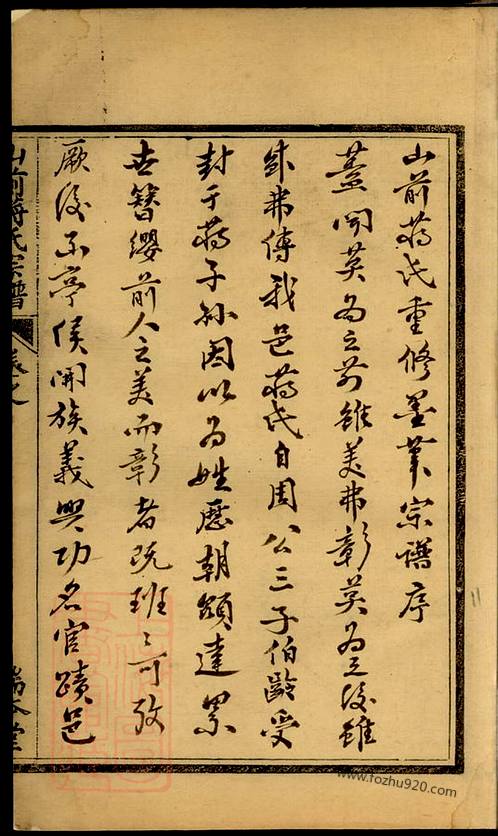 山前蒋氏重修墨筆宗譜序
蓋聞莫為之前雖美弗彰莫為之後雖
盛弗傳我邑蒋氏自周公三子伯齡受
封于蒋子孫因以為姓歷朝顕達累
世簪纓前人之美而彰者既班〻可攷
厥後𠀾亭侯開族義興功名官蹟邑
山前蒋氏宗譜
www.fozhu920.com